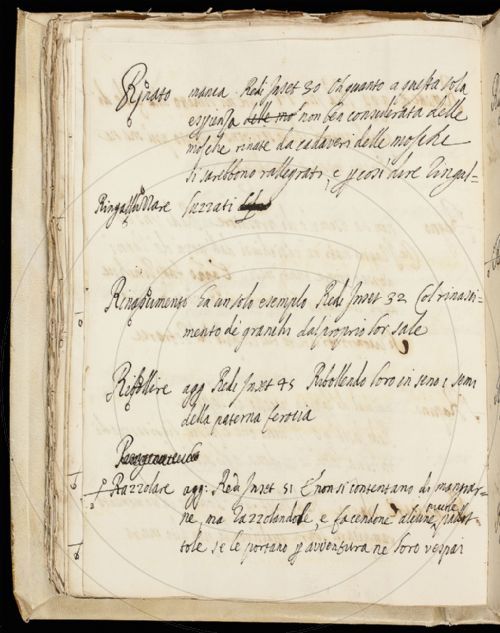 Rinato manca. Redi Inset 30 Oh quanto a questa sola
espensa delle mo non ben considerata delle
mosche rinate da cadaveri delle mosche
si sarebbono rallegrati, e p così dire Ringal-
Ringalluzzare luzzati
Rinascimento ha un solo esempio Redi Inset 32 Col rinasci-
mento de granchi dal proprio lor sale
Ribollire agg Redi Inset 45 Ribollendo loro in seno i semi
della paterna ferocia
Razzolare agg: Redi Inset 51 E non si contentano di mangiar-
ne, ma razzolandole, e facendone alcune pallot
tole se le portano p avventura ne loro vespai